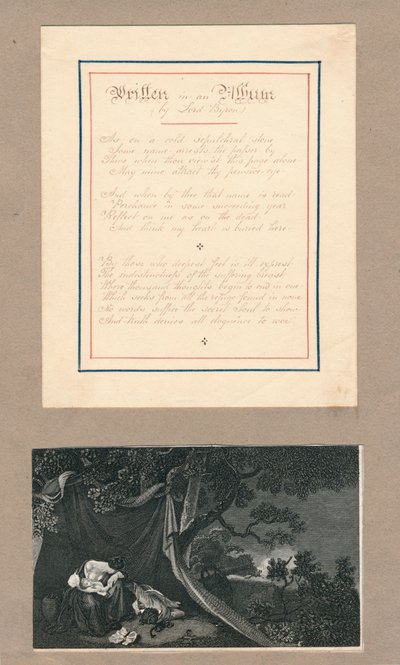 Written in an Album
(by Lord Byron)
As on a cold sepulchral stone
Some name arrests the passer by
Thus when thou view'st this page alone
May mine attract thy pensive eye
And when by thee that name is read
Perchance in some succeeding year
Reflect on me as on the dead
And think my heart is buried here
By those who deepest feel is ill exprest
The indistinctness of the suffering breast
Where thousand thoughts begin to end in one
Which seeks from all the refuge found in none
No words suffice the secret soul to show
And truth denies all eloquence to woe